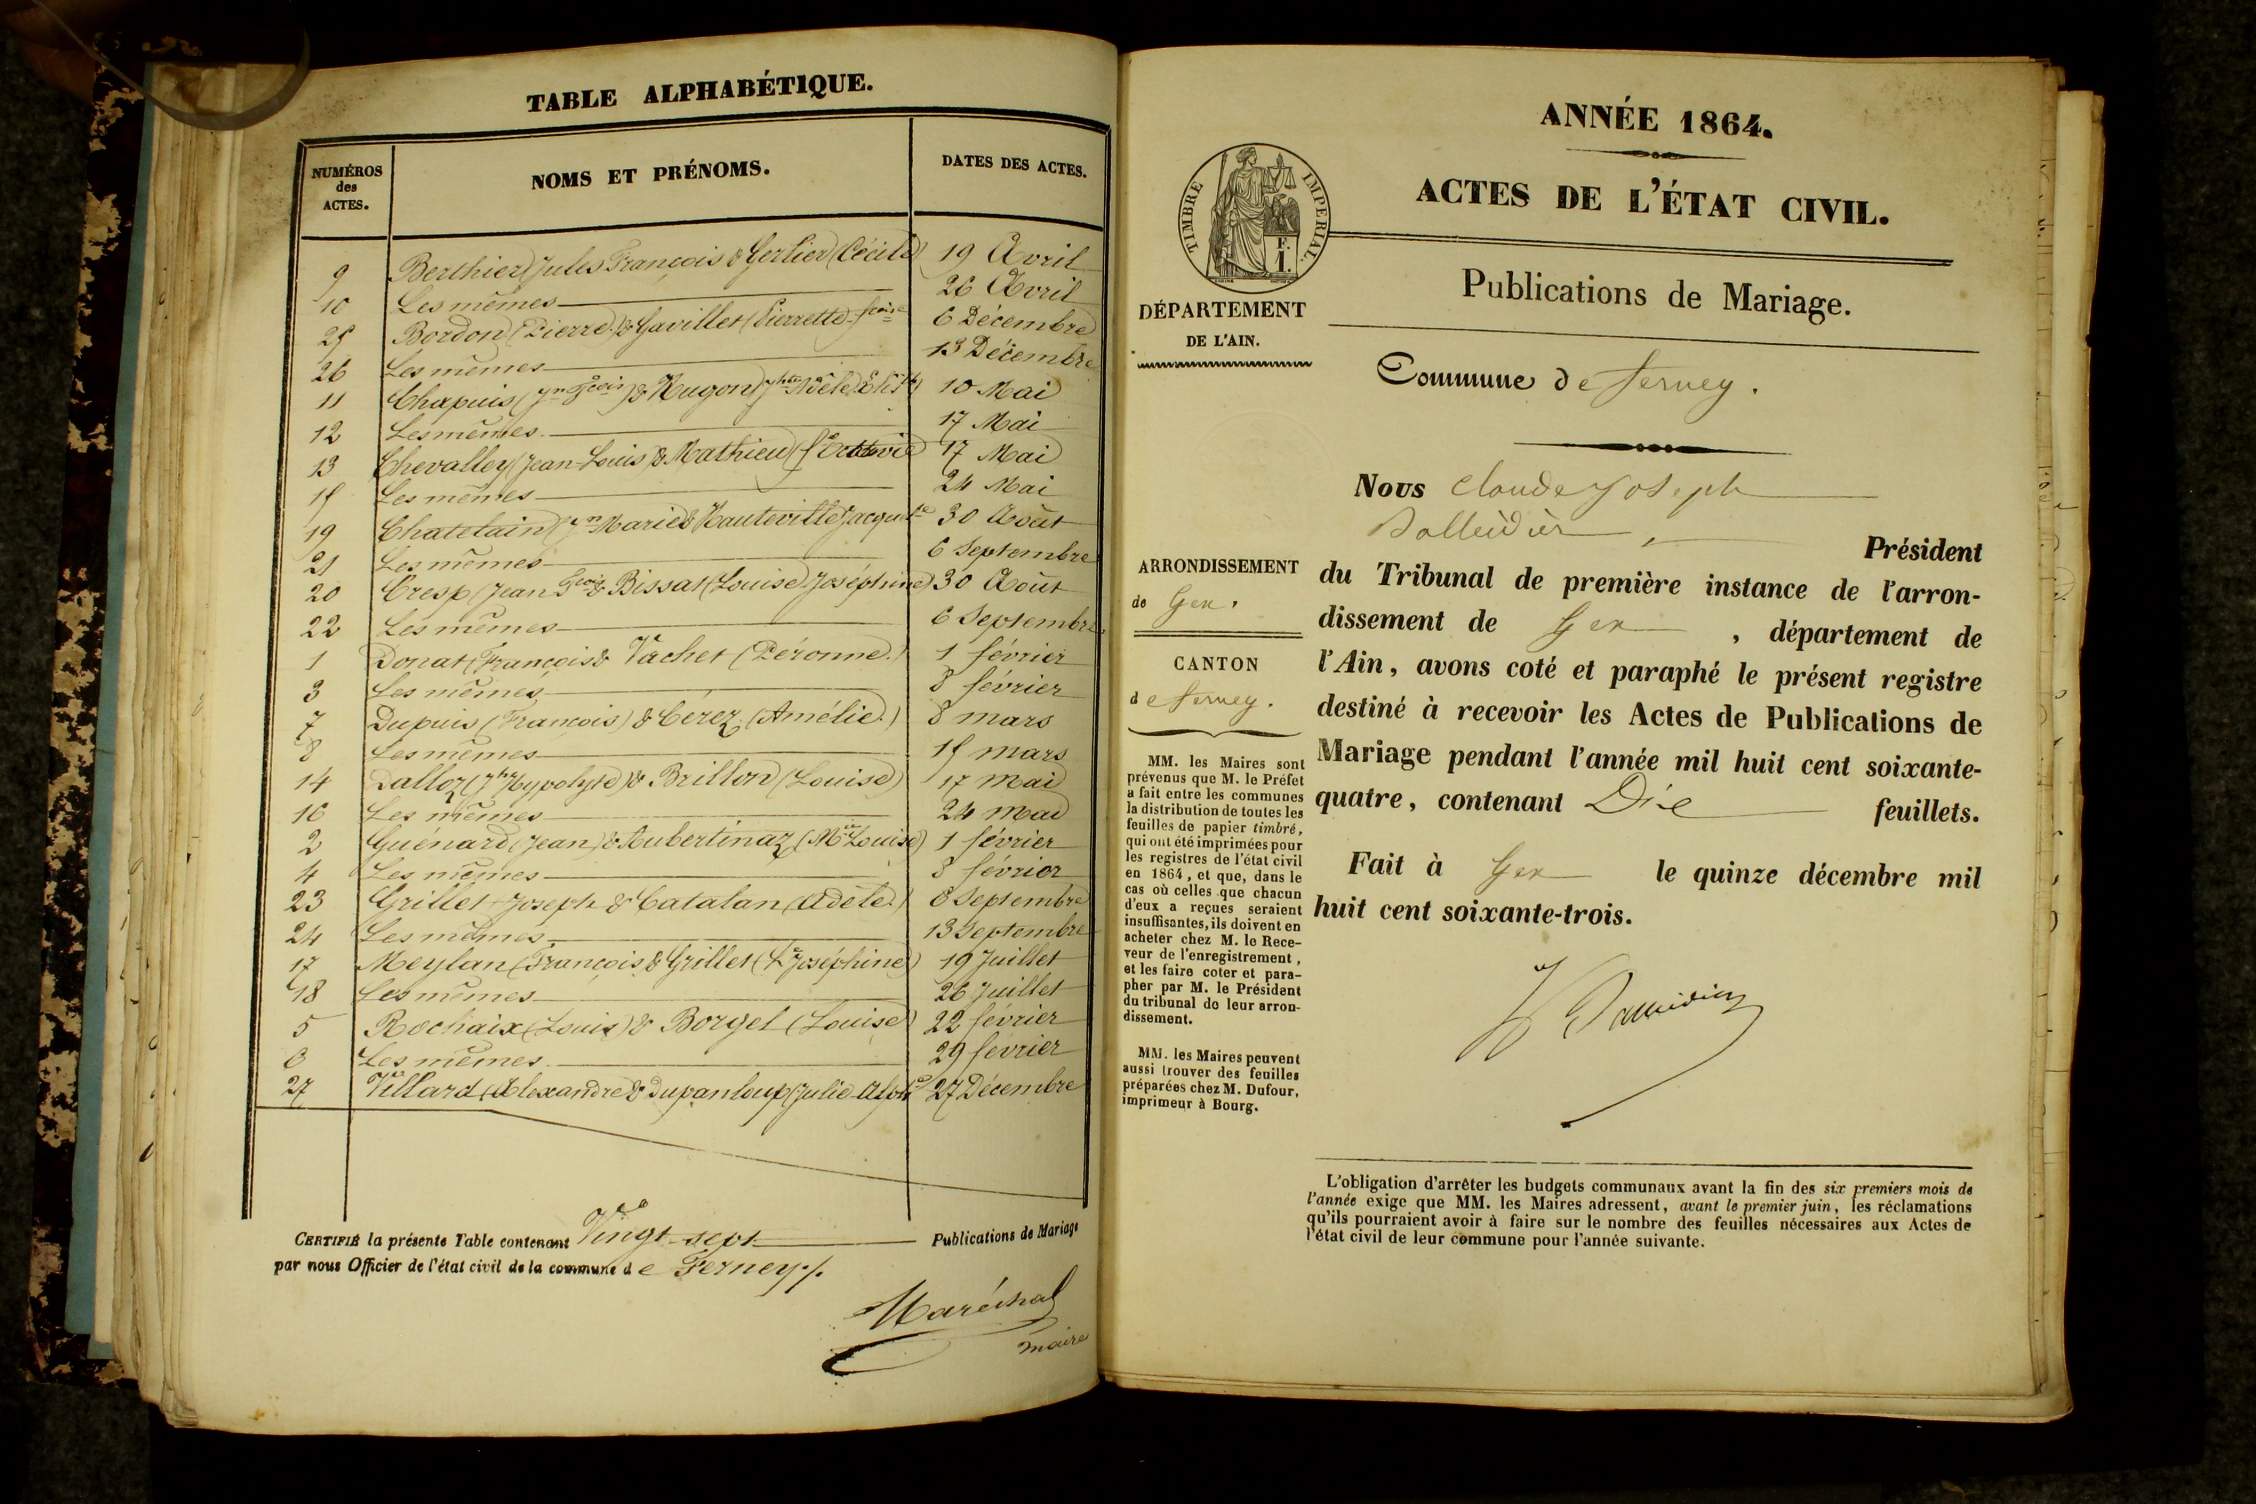 TABLE ALPHABÉTIQUE.
NUMÉROS des ACTES. NOMS ET PRÉNOMS. DATES DES ACTES.
9 Berthier (Jules François & Gerlier (Cécile) 19 Avril
10 Les mêmes 26 Avril
25 Bordon (Pierre) & Gavillet (Pierrette fçoise 6 Décembre
26 Les mêmes 13 Décembre
11 Chapuis & Hugon 10 Mai
12 Les mêmes 17 Mai
13 Chevalley (Jean-Louis) & Mathieu 17 Mai
15 Les mêmes 24 Mai
19 Chatelain (Jn Marie & Hauteville Jacqute 30 Août
21 Les mêmes 6 Septembre
20 Cresp (Jean Fçois & Bissat (Louise Joséphine) 30 Août
22 Les mêmes 6 Septembre
1 Donat (François & Vachet (Péronne.) 1 février
3 Les mêmes 8 février
7 Dupuis (François) & Cérez (Amélie.) 8 mars
8 Les mêmes 15 mars
14 Dalloz (Jh Hypolyte) & Brillon (Louise) 17 Mai
16 Les mêmes 24 mai
2 Guénard (Jean) & Aubertinaz (Mie Louise) 1 février
4 Les mêmes 8 février
23 Grillet Joseph & Catalan (Adèle.) 6 Septembre
24 Les mêmes 13 Septembre
17 Meylan (François & Grillet (Lse Joséphine) 19 Juillet
18 Les mêmes 26 Juillet
5 Rochaix (Louis) & Borgel (Louise) 22 février
6 Les mêmes 29 février
27 Villard (Alexandre & Dupanloup (Julie 27 Décembre
CERTIFIÉ la présente Table contenant Vingt-sept Publications de Mariage
par nous Officier de l'état civil de la commune de Ferney
Maréchal
maire
ANNÉE 1864.
ACTES DE L'ÉTAT CIVIL.
TIMBRE IMPERIAL.
F.
1.
DÉPARTEMENT
DE L'AIN.
Publications de Mariage.
Commune de Ferney.
ARRONDISSEMENT
de Gex.
CANTON
de Ferney.
MM. les Maires sont
prévenus que M. le Préfet
a fait entre les communes
la distribution de toutes les
feuilles de papier timbré,
qui ont été imprimées pour
les registres de l'état civil
en 1864, et que, dans le
cas où celles que chacun
d'eux a reçues seraient
insuffisantes, ils doivent en
acheter chez M. le Rece-
veur de l'enregistrement,
et les faire coter et para-
pher par M. le Président
du tribunal de leur arron-
dissement.
MM. les Maires peuvent
aussi trouver des feuilles
préparées chez M. Dufour,
imprimeur à Bourg.
Nous Claude Joseph
Président
du Tribunal de première instance de l'arron-
dissement de Gex, département de
l'Ain, avons coté et paraphé le présent registre
destiné à recevoir les Actes de Publications de
Mariage pendant l'année mil huit cent soixante-
quatre, contenant Dix feuillets.
Fait à Gex le quinze décembre mil
huit cent soixante-trois.
L'obligation d'arrêter les budgets communaux avant la fin des six premiers mois de
l'année exige que MM. les Maires adressent, avant le premier juin, les réclamations
qu'ils pourraient avoir à faire sur le nombre des feuilles nécessaires aux Actes de
l'état civil de leur commune pour l'année suivante.